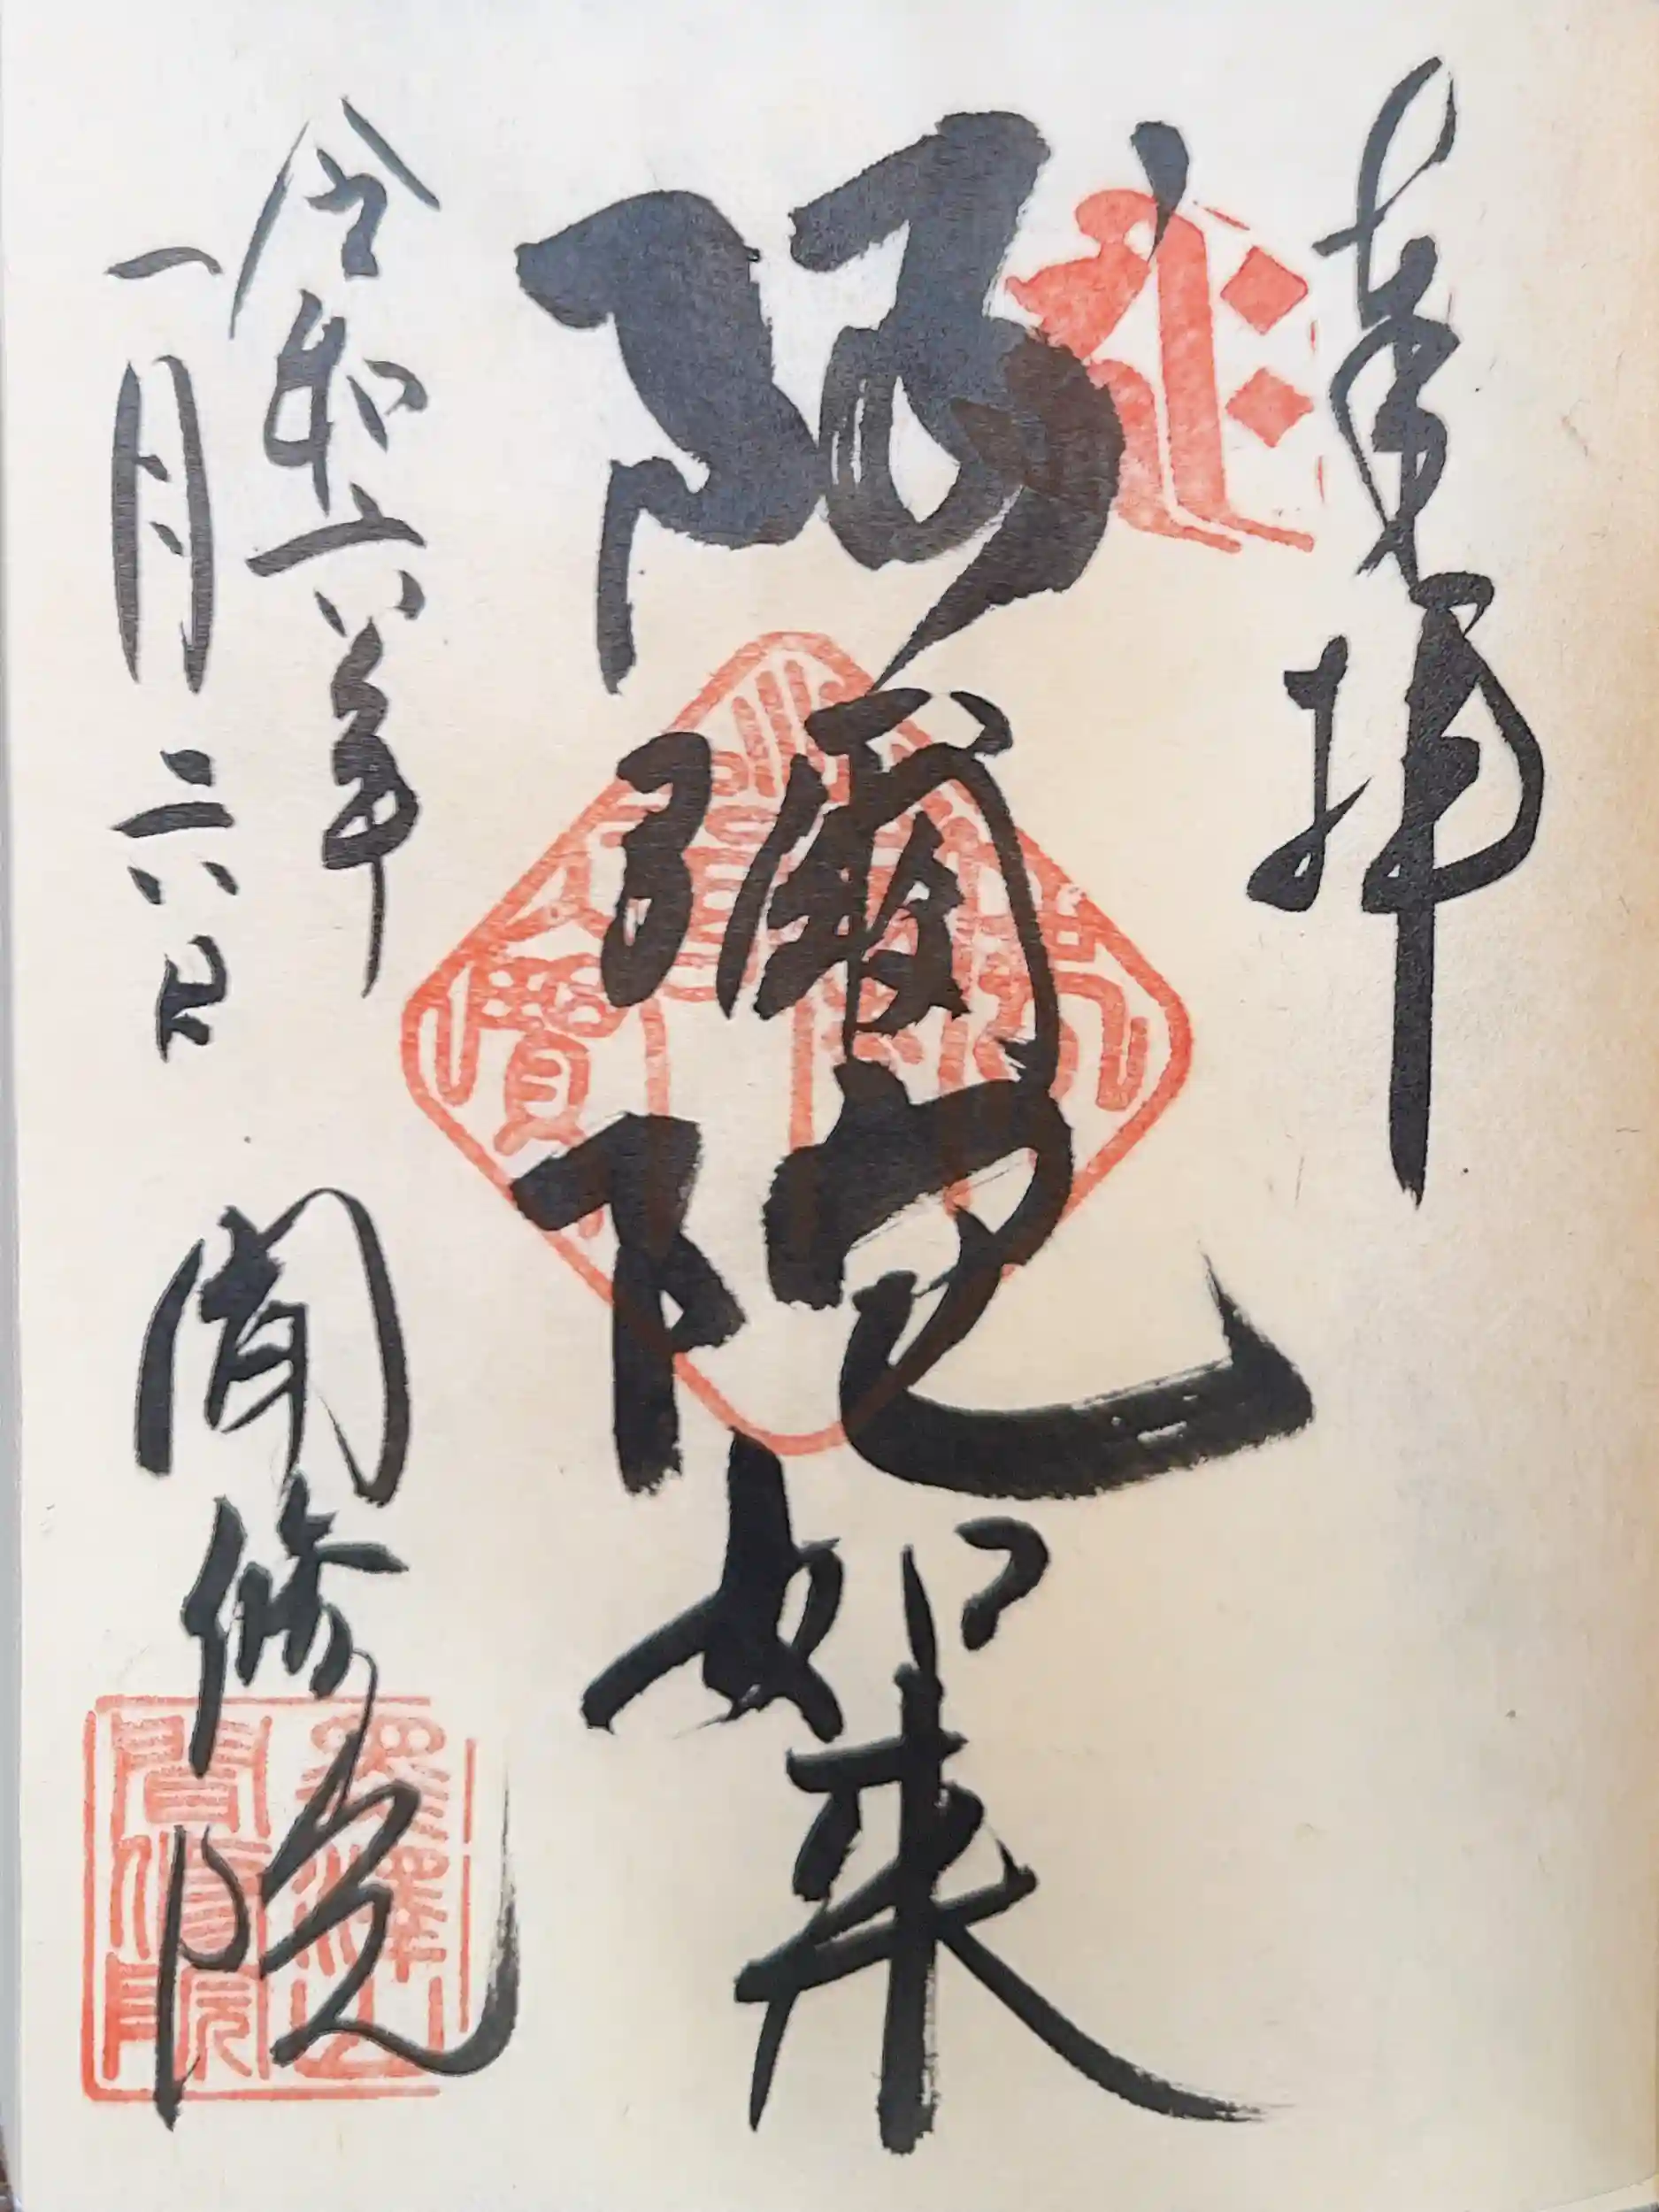 奉拝
阿彌陀如来
令和六年
一月二六日
聞修院